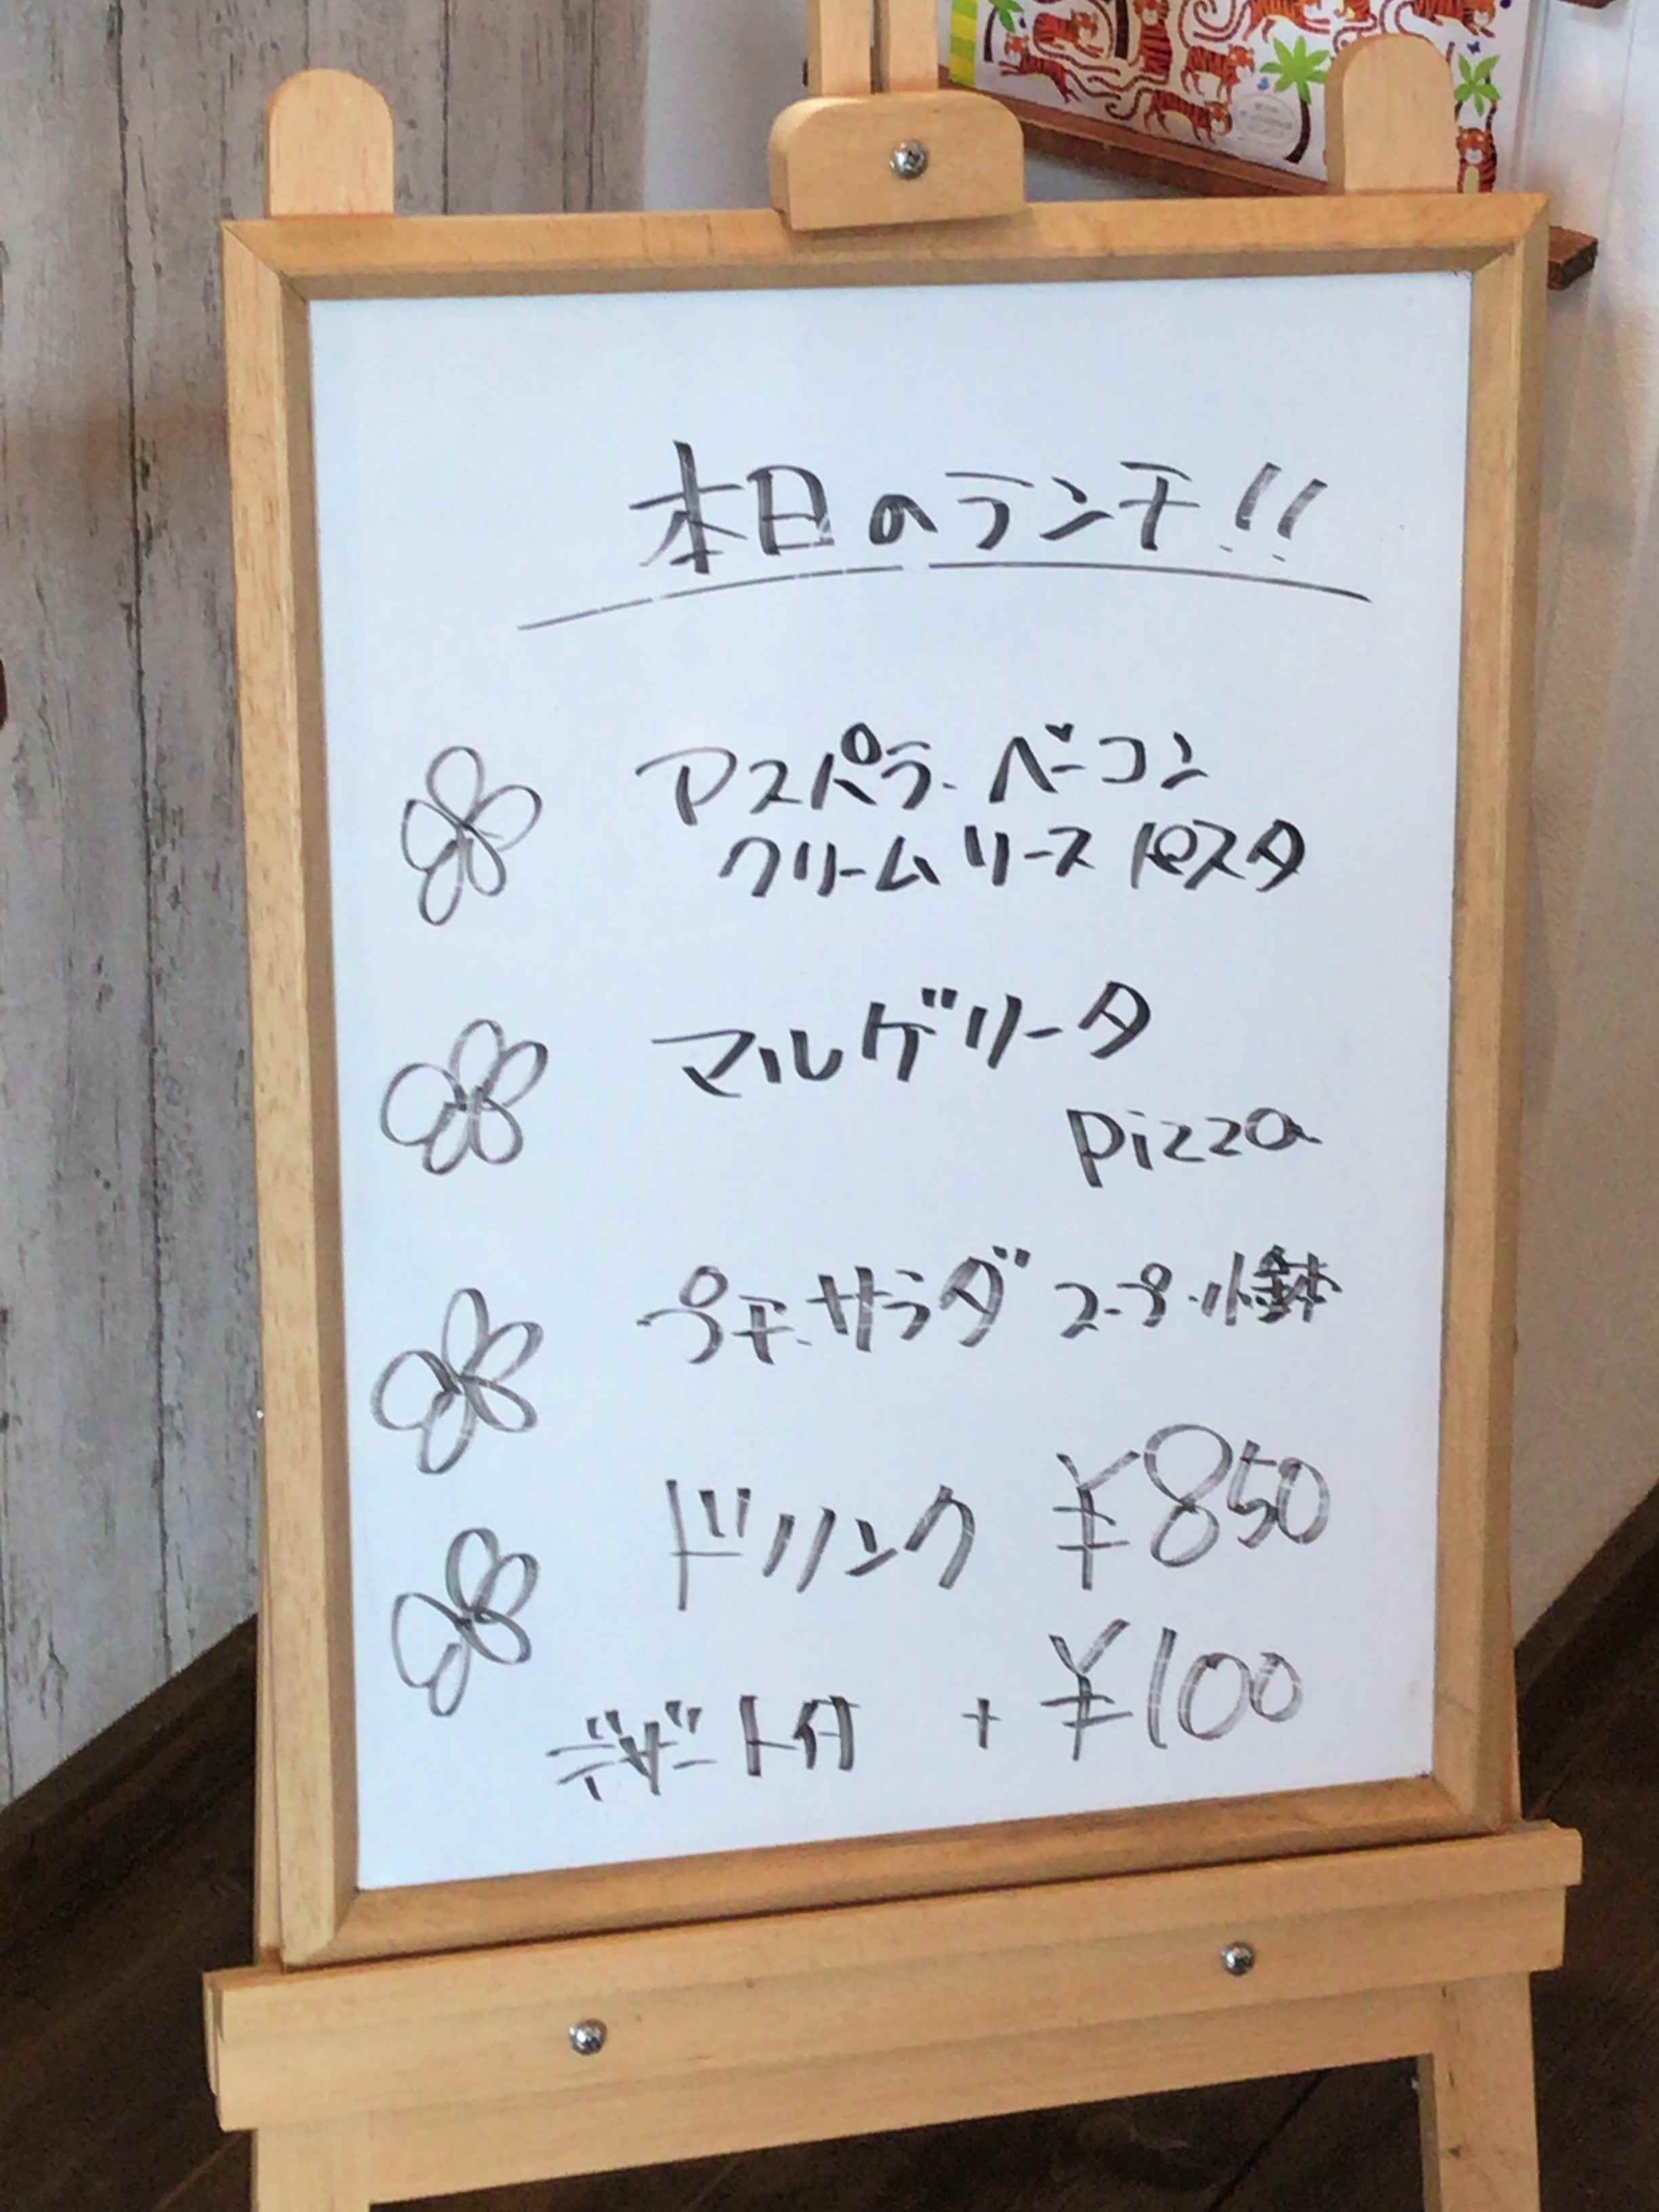 本日のランチ!!
アスパラ・ベーコン
クリームソースパスタ
マルゲリータ
pizza
プチサラダ スープ・小鉢
ドリンク ¥850
デザート付 + ¥100